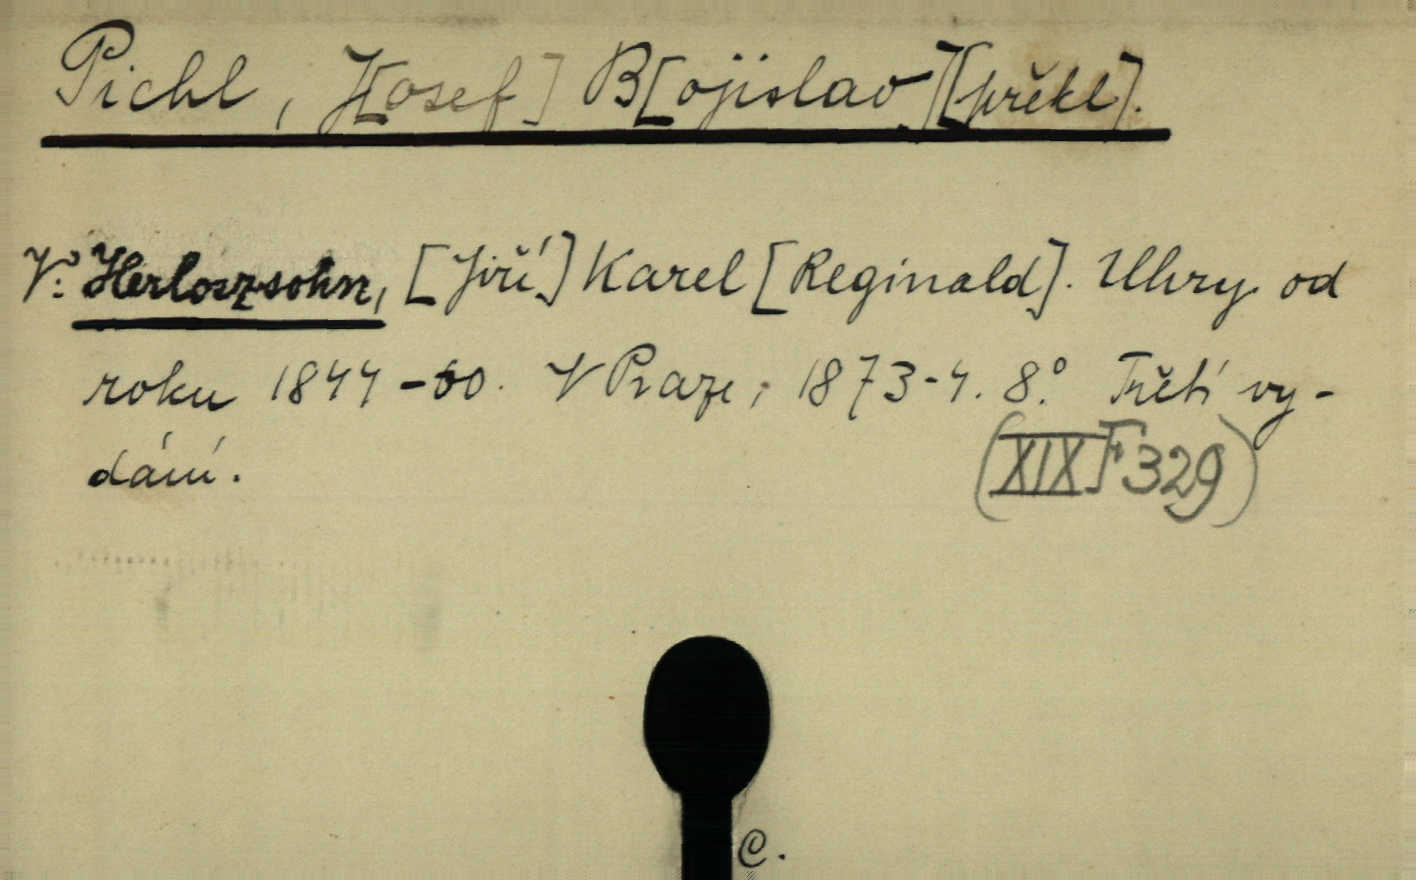 Pichl, J[osef] B[ojislav] [překl].
V: Herloszsohn, [Jiří] Karel [Reginald]. Uhry od
roku 1844-60. V Praze, 1873-4. 8.° Třetí vy-
dání.
(XIX F 329)
C.